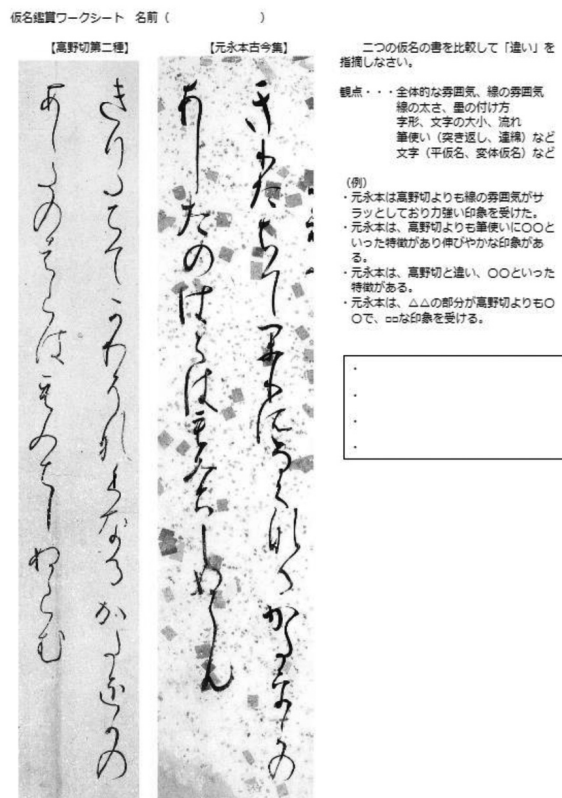 仮名鑑賞ワークシート　名前（　　　　　　　）
【高野切第二種】
きりたちて かたをかの
あしたのはらはもみちしぬらむ
【元永本古今集】
きりたちて かたをかの
あしたのはらはもみちしぬらん
二つの仮名の書を比較して「違い」を
指摘しなさい。
観点・・・全体的な雰囲気、線の雰囲気
線の太さ、墨の付け方
字形、文字の大小、流れ
筆使い（突き返し、連綿）など
文字（平仮名、変体仮名）など
（例）
・元永本は高野切よりも線の雰囲気がサ
ラッとしており力強い印象を受けた。
・元永本は、高野切よりも筆使いに〇〇と
いった特徴があり伸びやかな印象があ
る。
・元永本は、高野切と違い、〇〇といった
特徴がある。
・元永本は、△△の部分が高野切よりも〇
〇で、□□な印象を受ける。
・
・
・
・